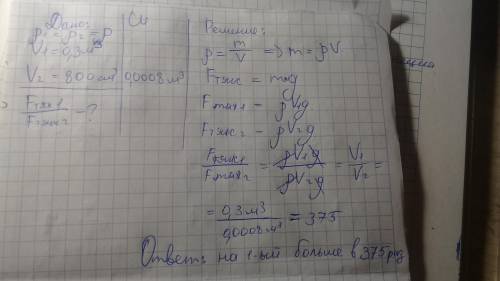 Дано:
ρ1 = ρ2 = ρ
V1 = 0,3м³
V2 = 800см³
Fтяж1
Fтяж2
— ?
Си
0,0008м³
Решение:
ρ = m/V => m = ρV
Fтяж = mg
Fтяж1 = ρV1g
Fтяж2 = ρV2g
Fтяж1/Fтяж2 = ρV1g/ρV2g = V1/V2 =
= 0,3м³/0,0008м³ = 375
Ответ: на 1-ый больше в 375 раз